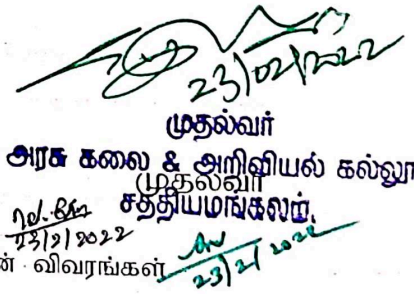 23/02/2022
முதல்வர்
அரசு கலை & அறிவியல் கல்லூ
முதல்வர்
சத்தியமங்கலம்.
23/2/2022
ன் விவரங்கள்
23/2/2022